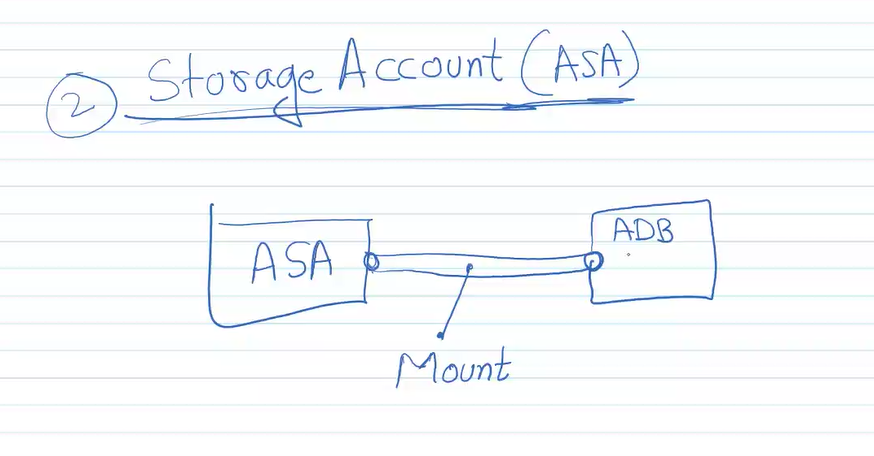 2 Storage Account (ASA)
ASA
ADB
Mount